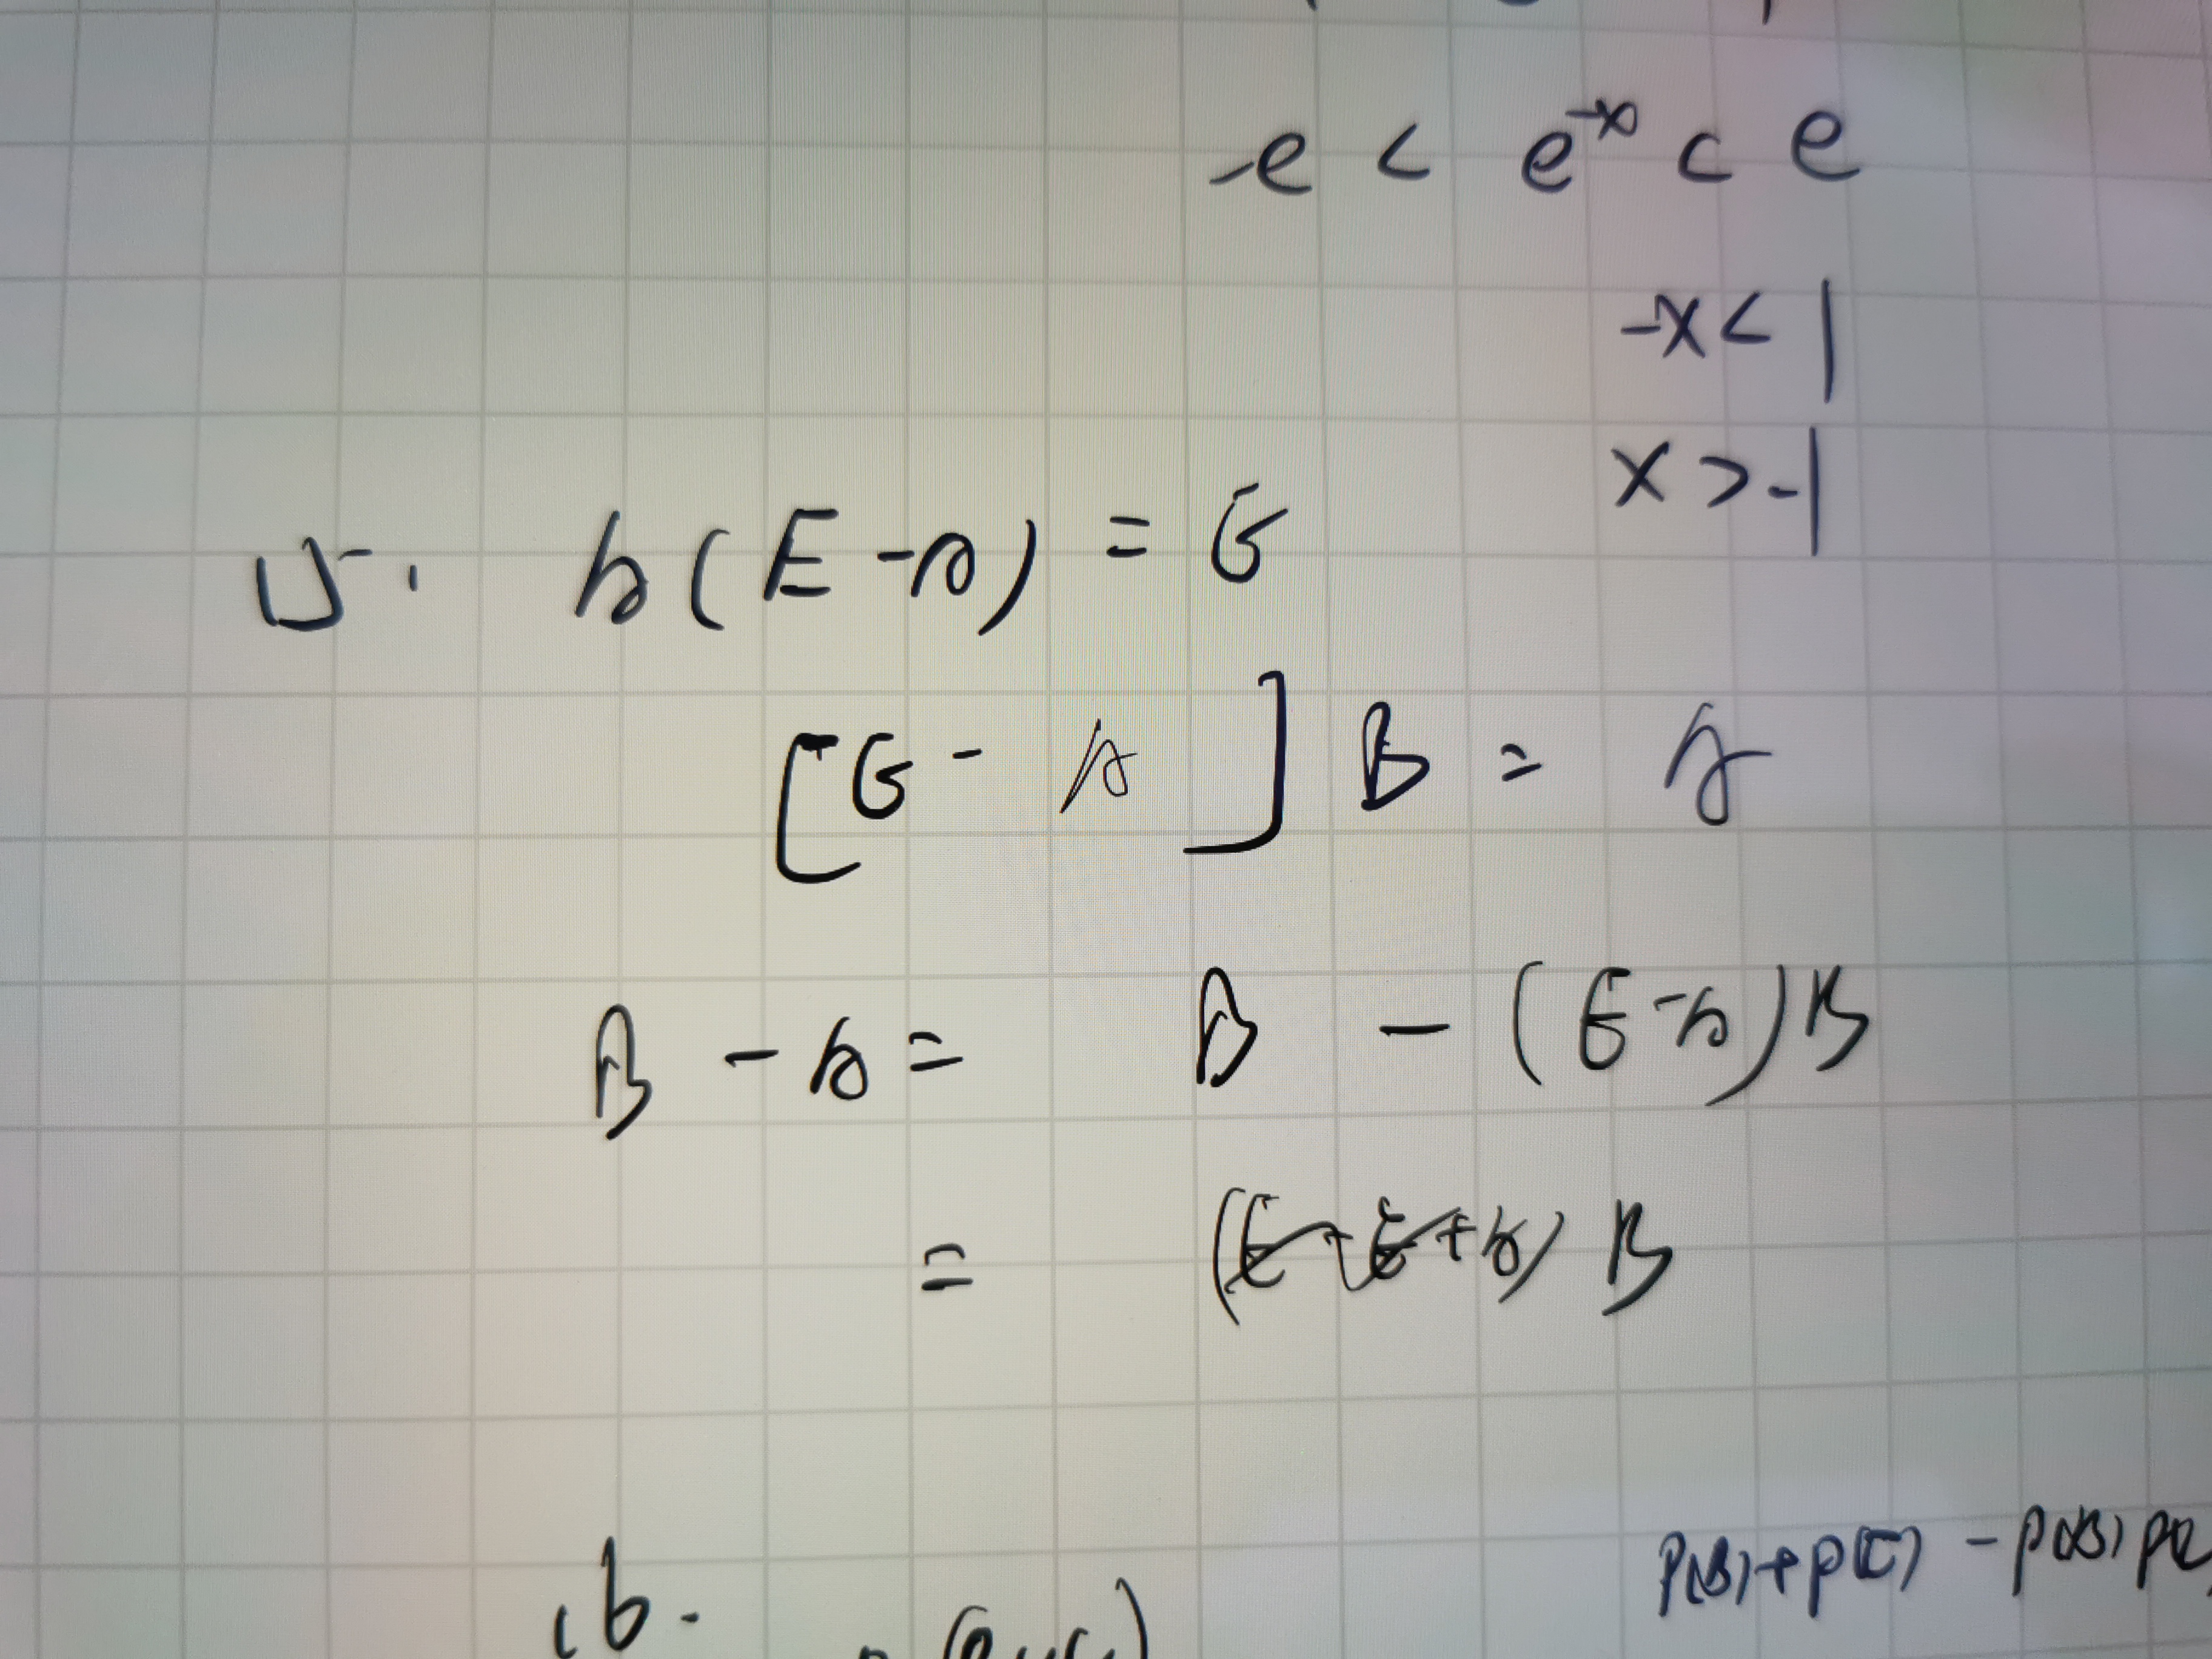 -e < e^-x < e
-x < 1
x > -1
15. A(E-A) = E
[E - A] B = A
B - A = B - (E-A)B
= (E-E+A) B
P(B)+P(C) - P(B)P(C
16.